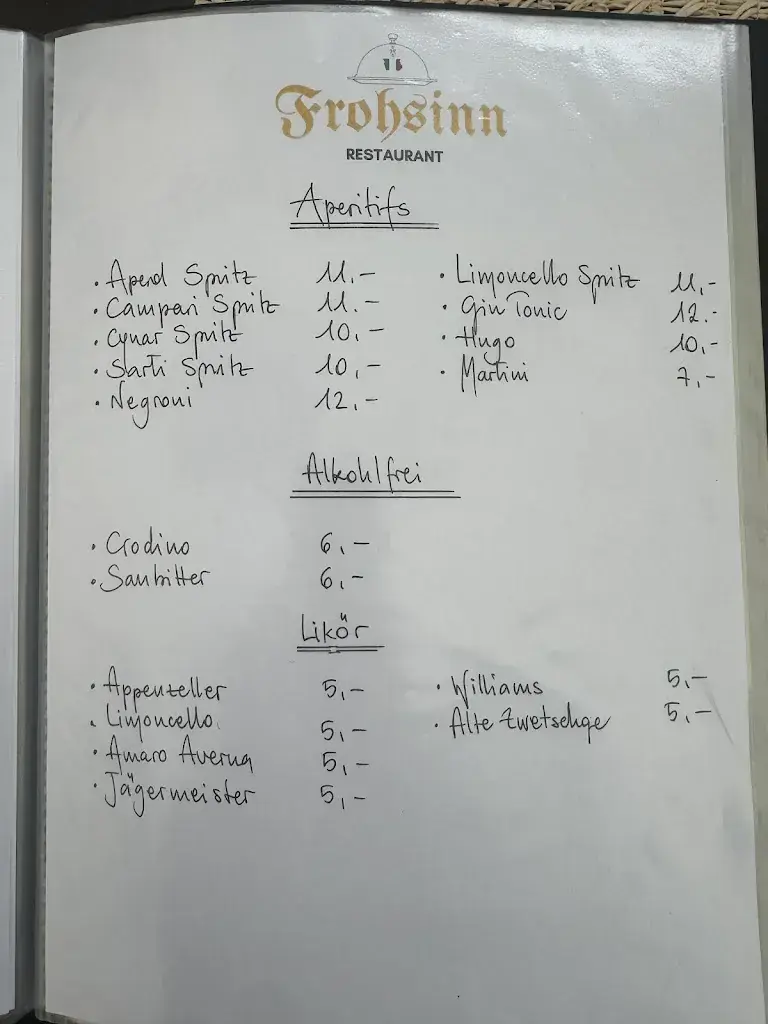 Frohsinn
RESTAURANT
Aperitifs
· Aperol Spritz 11,-
· Campari Spritz 11.-
· Cynar Spritz 10,-
· Sarti Spritz 10,-
· Negroni 12,-
· Limoncello Spritz 11,-
· Gin Tonic 12.-
· Hugo 10,-
· Martini 7,-
Alkohlfrei
· Crodino 6,-
· Sanbitter 6,-
Likör
· Appenzeller 5,-
· Limoncello 5,-
· Amaro Averna 5,-
· Jägermeister 5,-
· Williams 5,-
· Alte Zwetschge 5,-